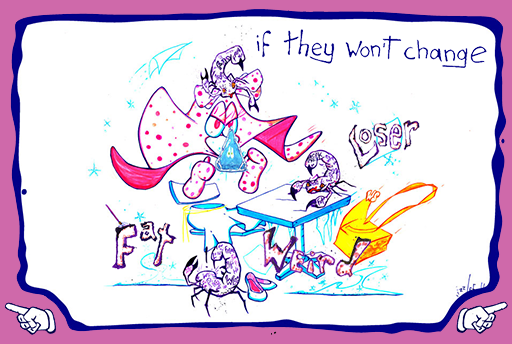 if they won't change
Loser
Fat
Weird